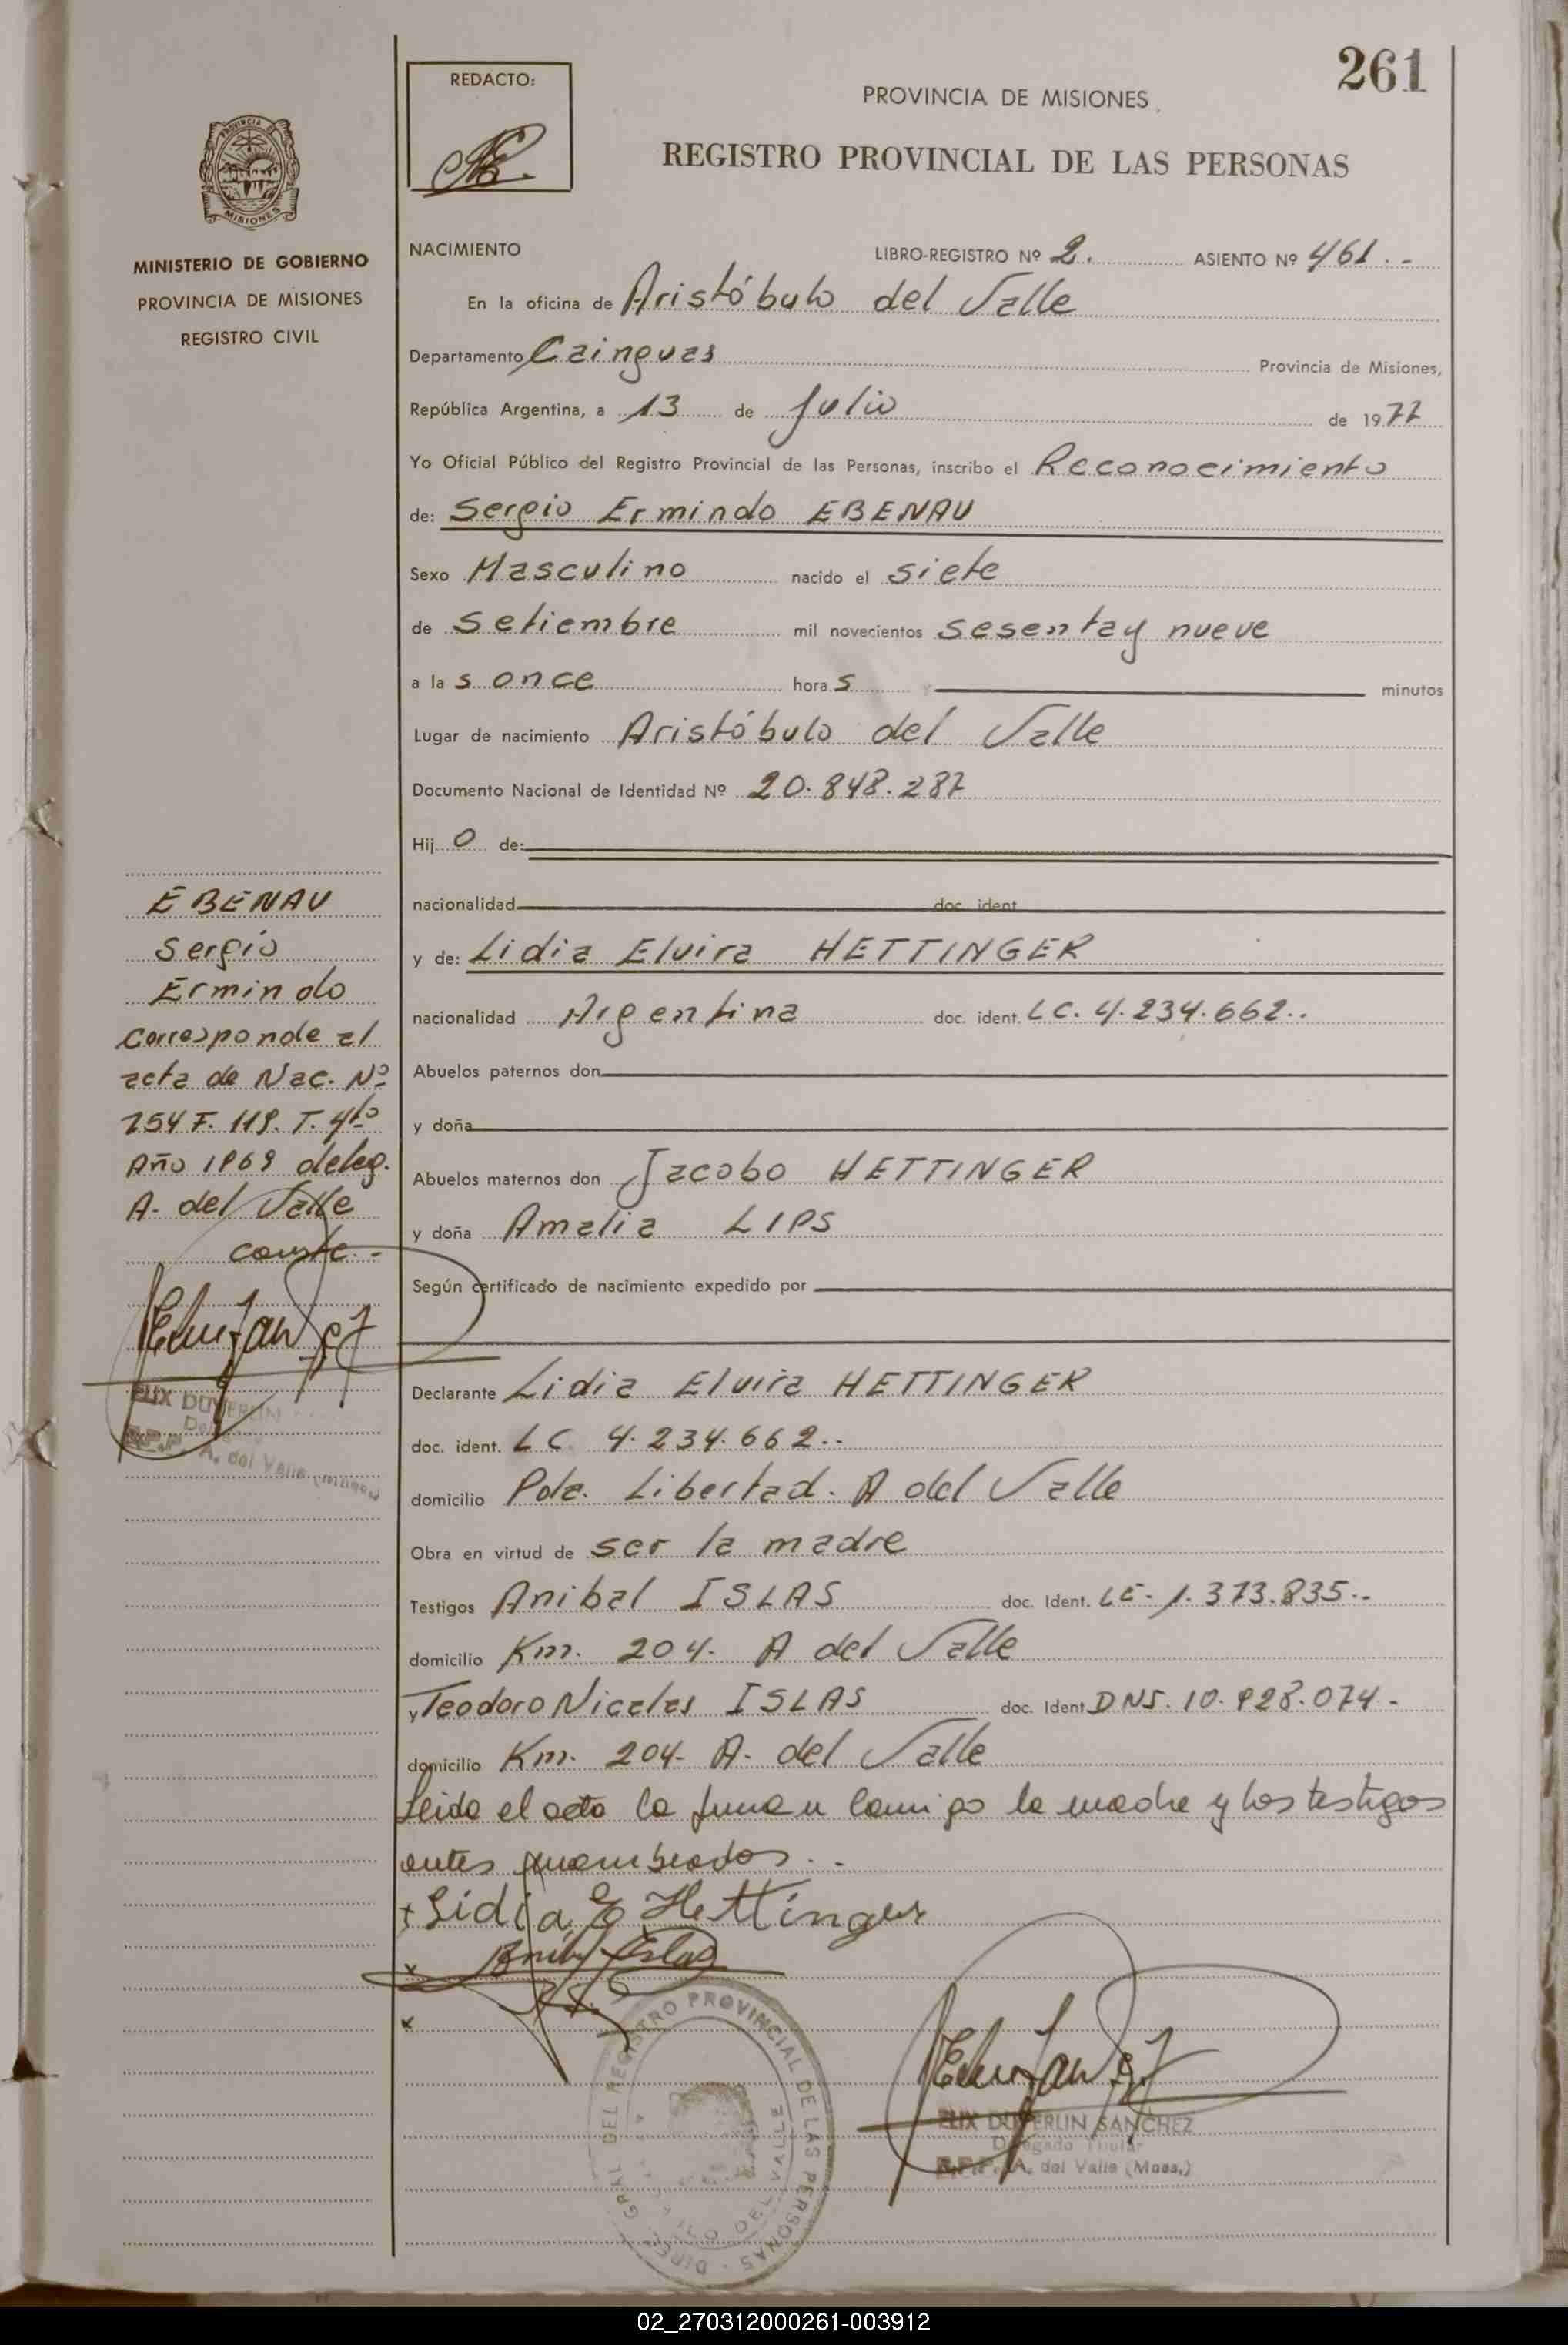 261
REDACTO:
PROVINCIA DE MISIONES
REGISTRO PROVINCIAL DE LAS PERSONAS
PROVINCIA DE
MISIONES
MINISTERIO DE GOBIERNO
PROVINCIA DE MISIONES
REGISTRO CIVIL
NACIMIENTO LIBRO-REGISTRO Nº 2. ASIENTO Nº 461.-
En la oficina de Aristóbulo del Valle
Departamento Cainguas Provincia de Misiones,
República Argentina, a 13 de Julio de 1977
Yo Oficial Público del Registro Provincial de las Personas, inscribo el Reconocimiento
de: Sergio Ermindo EBENAU
Sexo Masculino nacido el siete
de Setiembre mil novecientos sesenta y nueve
a la s once hora s y minutos
Lugar de nacimiento Aristóbulo del Valle
Documento Nacional de Identidad Nº 20.848.287
Hij o de:
nacionalidad doc. ident.
y de: Lidia Elvira HETTINGER
nacionalidad Argentina doc. ident. LC. 4.234.662..
Abuelos paternos don
y doña
Abuelos maternos don Jacobo HETTINGER
y doña Amalia LIPS
Según certificado de nacimiento expedido por
Declarante Lidia Elvira HETTINGER
doc. ident. LC 4.234.662..
domicilio Pda. Libertad. A del Valle
Obra en virtud de ser la madre
Testigos Anibal ISLAS doc. Ident. LE. 1.373.835..
domicilio Km. 204. A del Valle
y Teodoro Nicolas ISLAS doc. Ident DNI. 10.928.074.-
domicilio Km. 204- A. del Valle
Leida el acta la firman conmigo la madre y los testigos
antes nombrados..
x Lidia E Hettinger
x Anibal Islas
x
EBENAU
Sergio
Ermindo
Corresponde al
acta de Nac. Nº
254 F. 119. T. 4to
Año 1969 deleg.
A. del Valle
conste.-
FELIX DUVERLIN
A. del Valle (Misnes)
DIREC. GRAL DEL REGISTRO PROVINCIAL DE LAS PERSONAS
DEL VALLE
FELIX DUVERLIN SANCHEZ
Delegado Titular
R.P.P. A. del Valle (Mnes.)
02_270312000261-003912